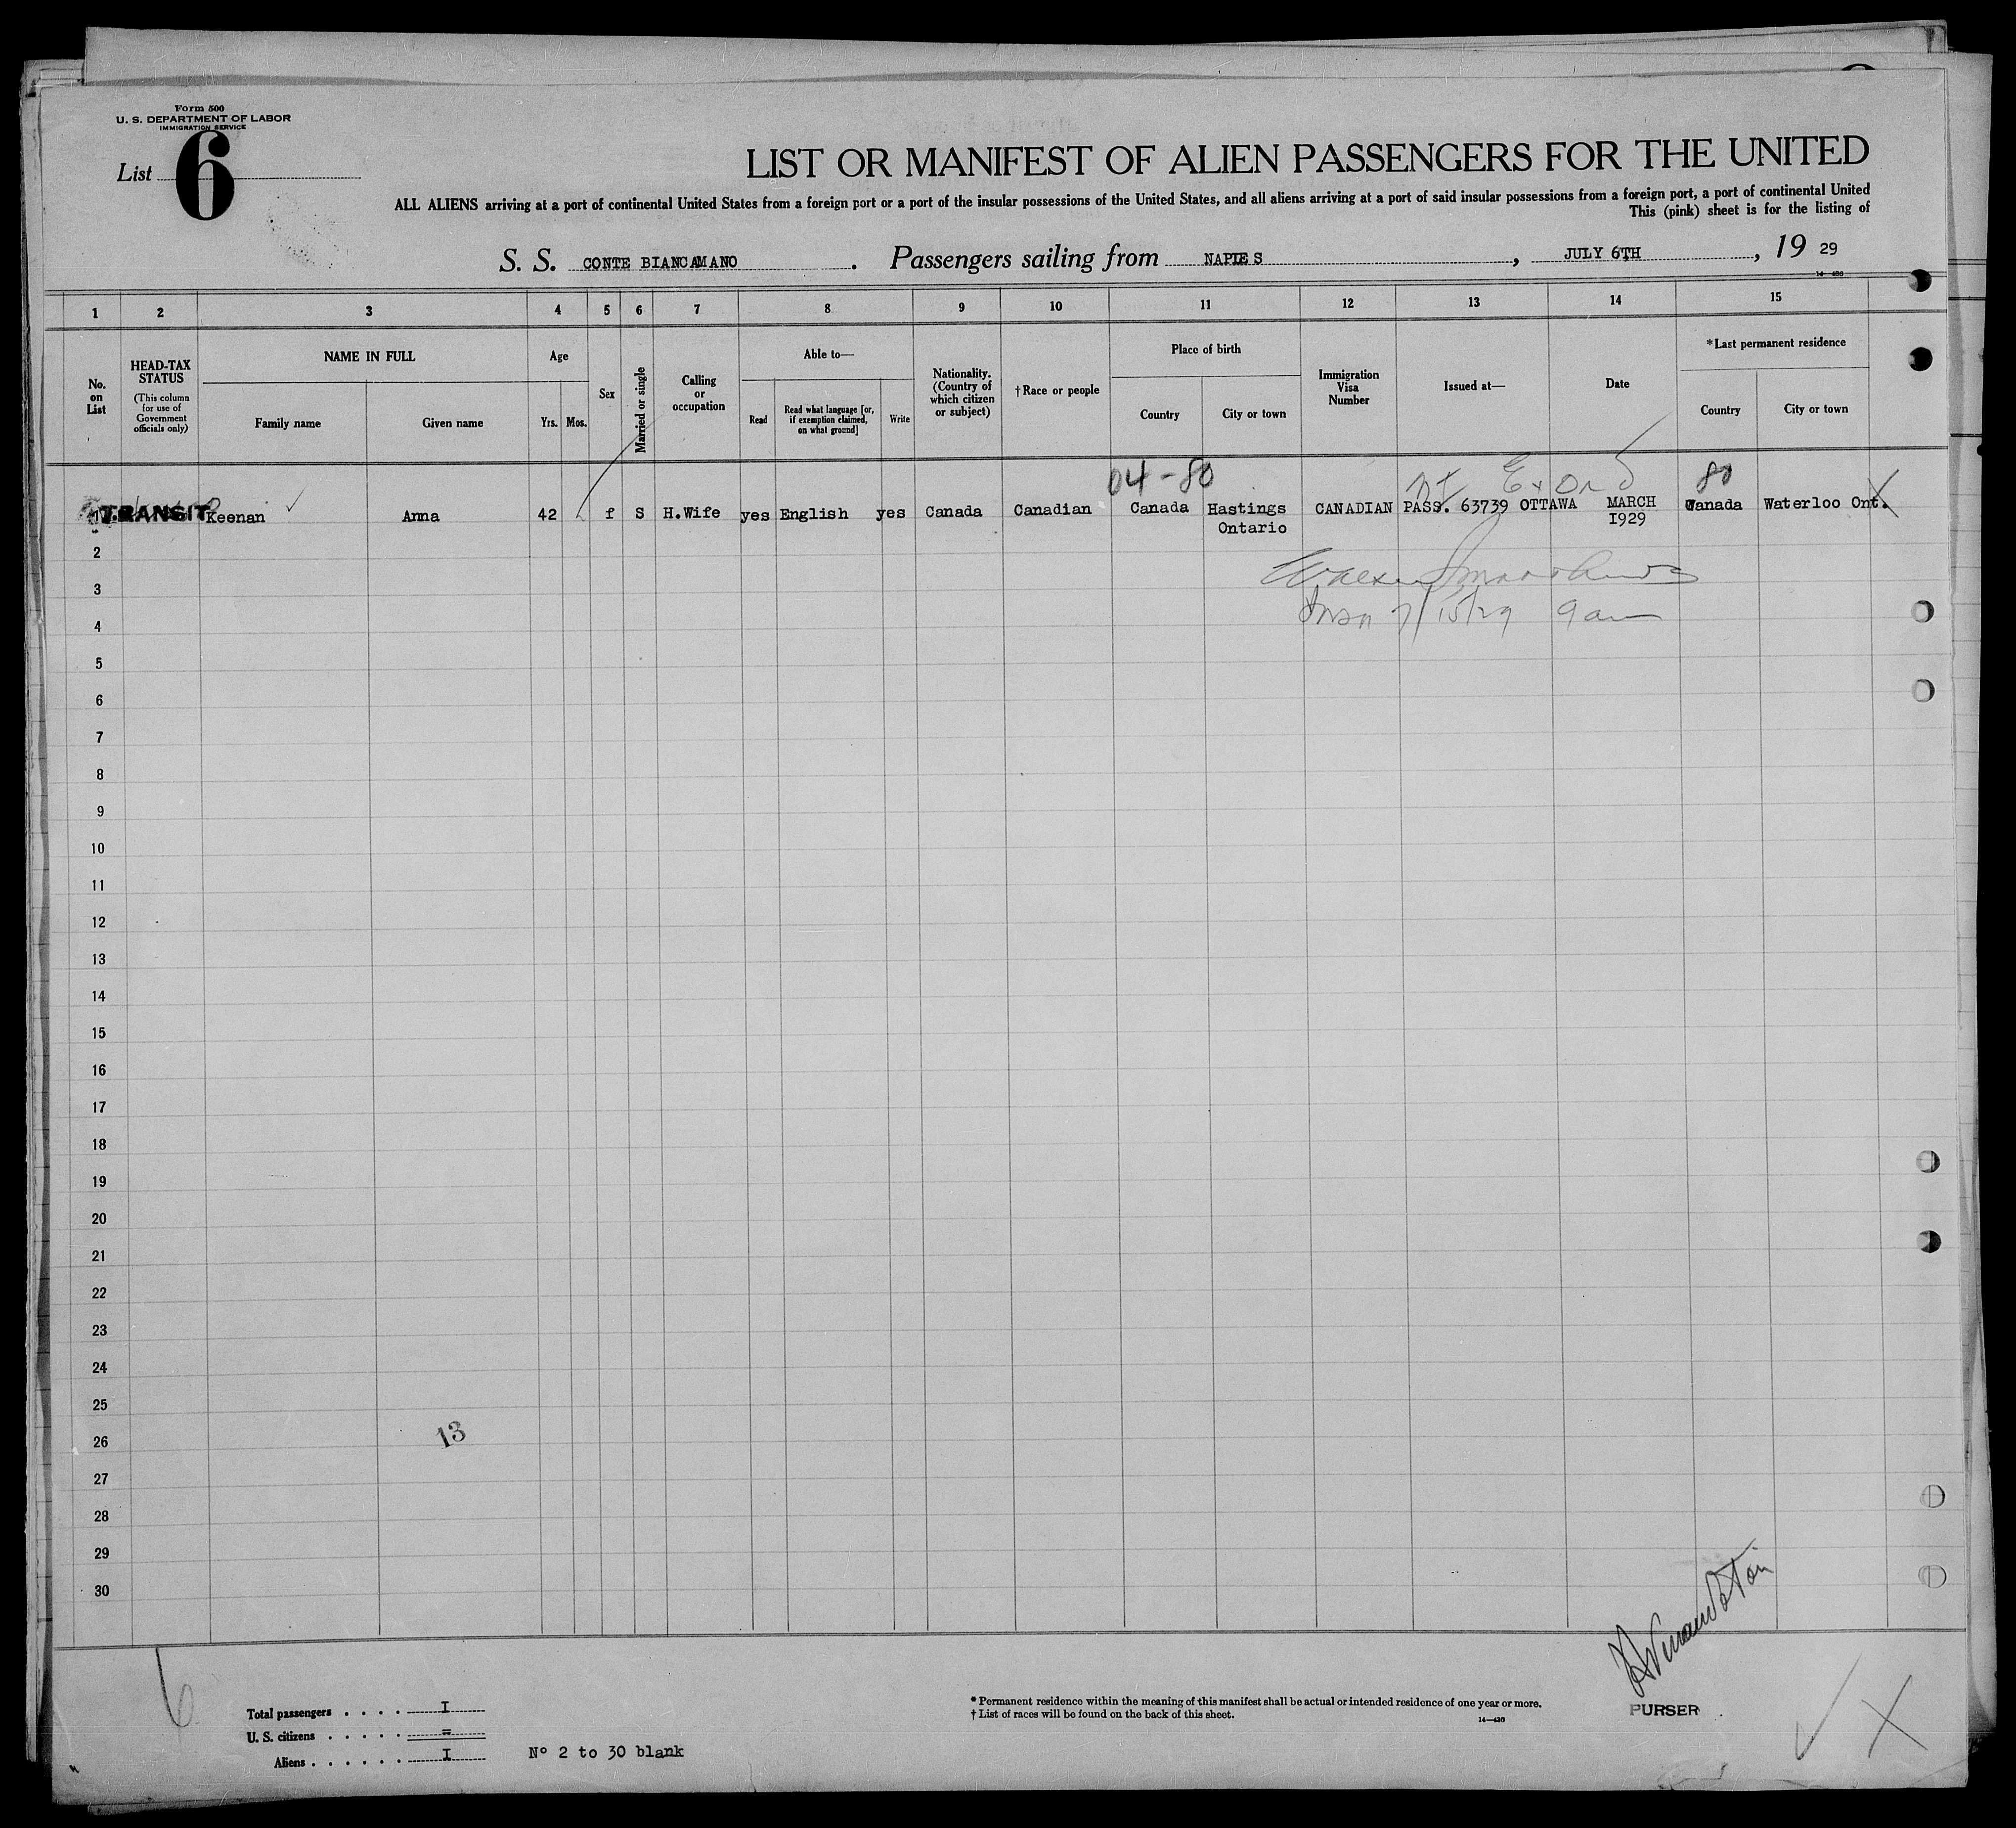 Form 500
U. S. DEPARTMENT OF LABOR
IMMIGRATION SERVICE
List 6
LIST OR MANIFEST OF ALIEN PASSENGERS FOR THE UNITED
ALL ALIENS arriving at a port of continental United States from a foreign port or a port of the insular possessions of the United States, and all aliens arriving at a port of said insular possessions from a foreign port, a port of continental United
This (pink) sheet is for the listing of
S. S. CONTE BIANCAMANO. Passengers sailing from NAPLES, JULY 6TH, 19 29
1 2 3 4 5 6 7 8 9 10 11 12 13 14 15
No. on List
HEAD-TAX STATUS
(This column for use of Government officials only)
NAME IN FULL
Family name
Given name
Age
Yrs.
Mos.
Sex
Married or single
Calling or occupation
Able to—
Read
Read what language [or, if exemption claimed, on what ground]
Write
Nationality. (Country of which citizen or subject)
†Race or people
Place of birth
Country
City or town
Immigration Visa Number
Issued at—
Date
*Last permanent residence
Country
City or town
04-80
80
1 TRANSIT Keenan Anna 42 f S H.Wife yes English yes Canada Canadian Canada Hastings Ontario CANADIAN PASS. 63739 OTTAWA MARCH 1929 Canada Waterloo Ont.
7/15/29 9am
2
3
4
5
6
7
8
9
10
11
12
13
14
15
16
17
18
19
20
21
22
23
24
25
26
27
28
29
30
13
6
Total passengers . . . . I
U. S. citizens . . . . . =
Aliens . . . . . . I
Nº 2 to 30 blank
* Permanent residence within the meaning of this manifest shall be actual or intended residence of one year or more.
† List of races will be found on the back of this sheet.
14—430
PURSER